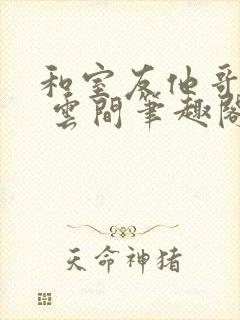 和室友他哥
雲間筆趣閣
天命神猪